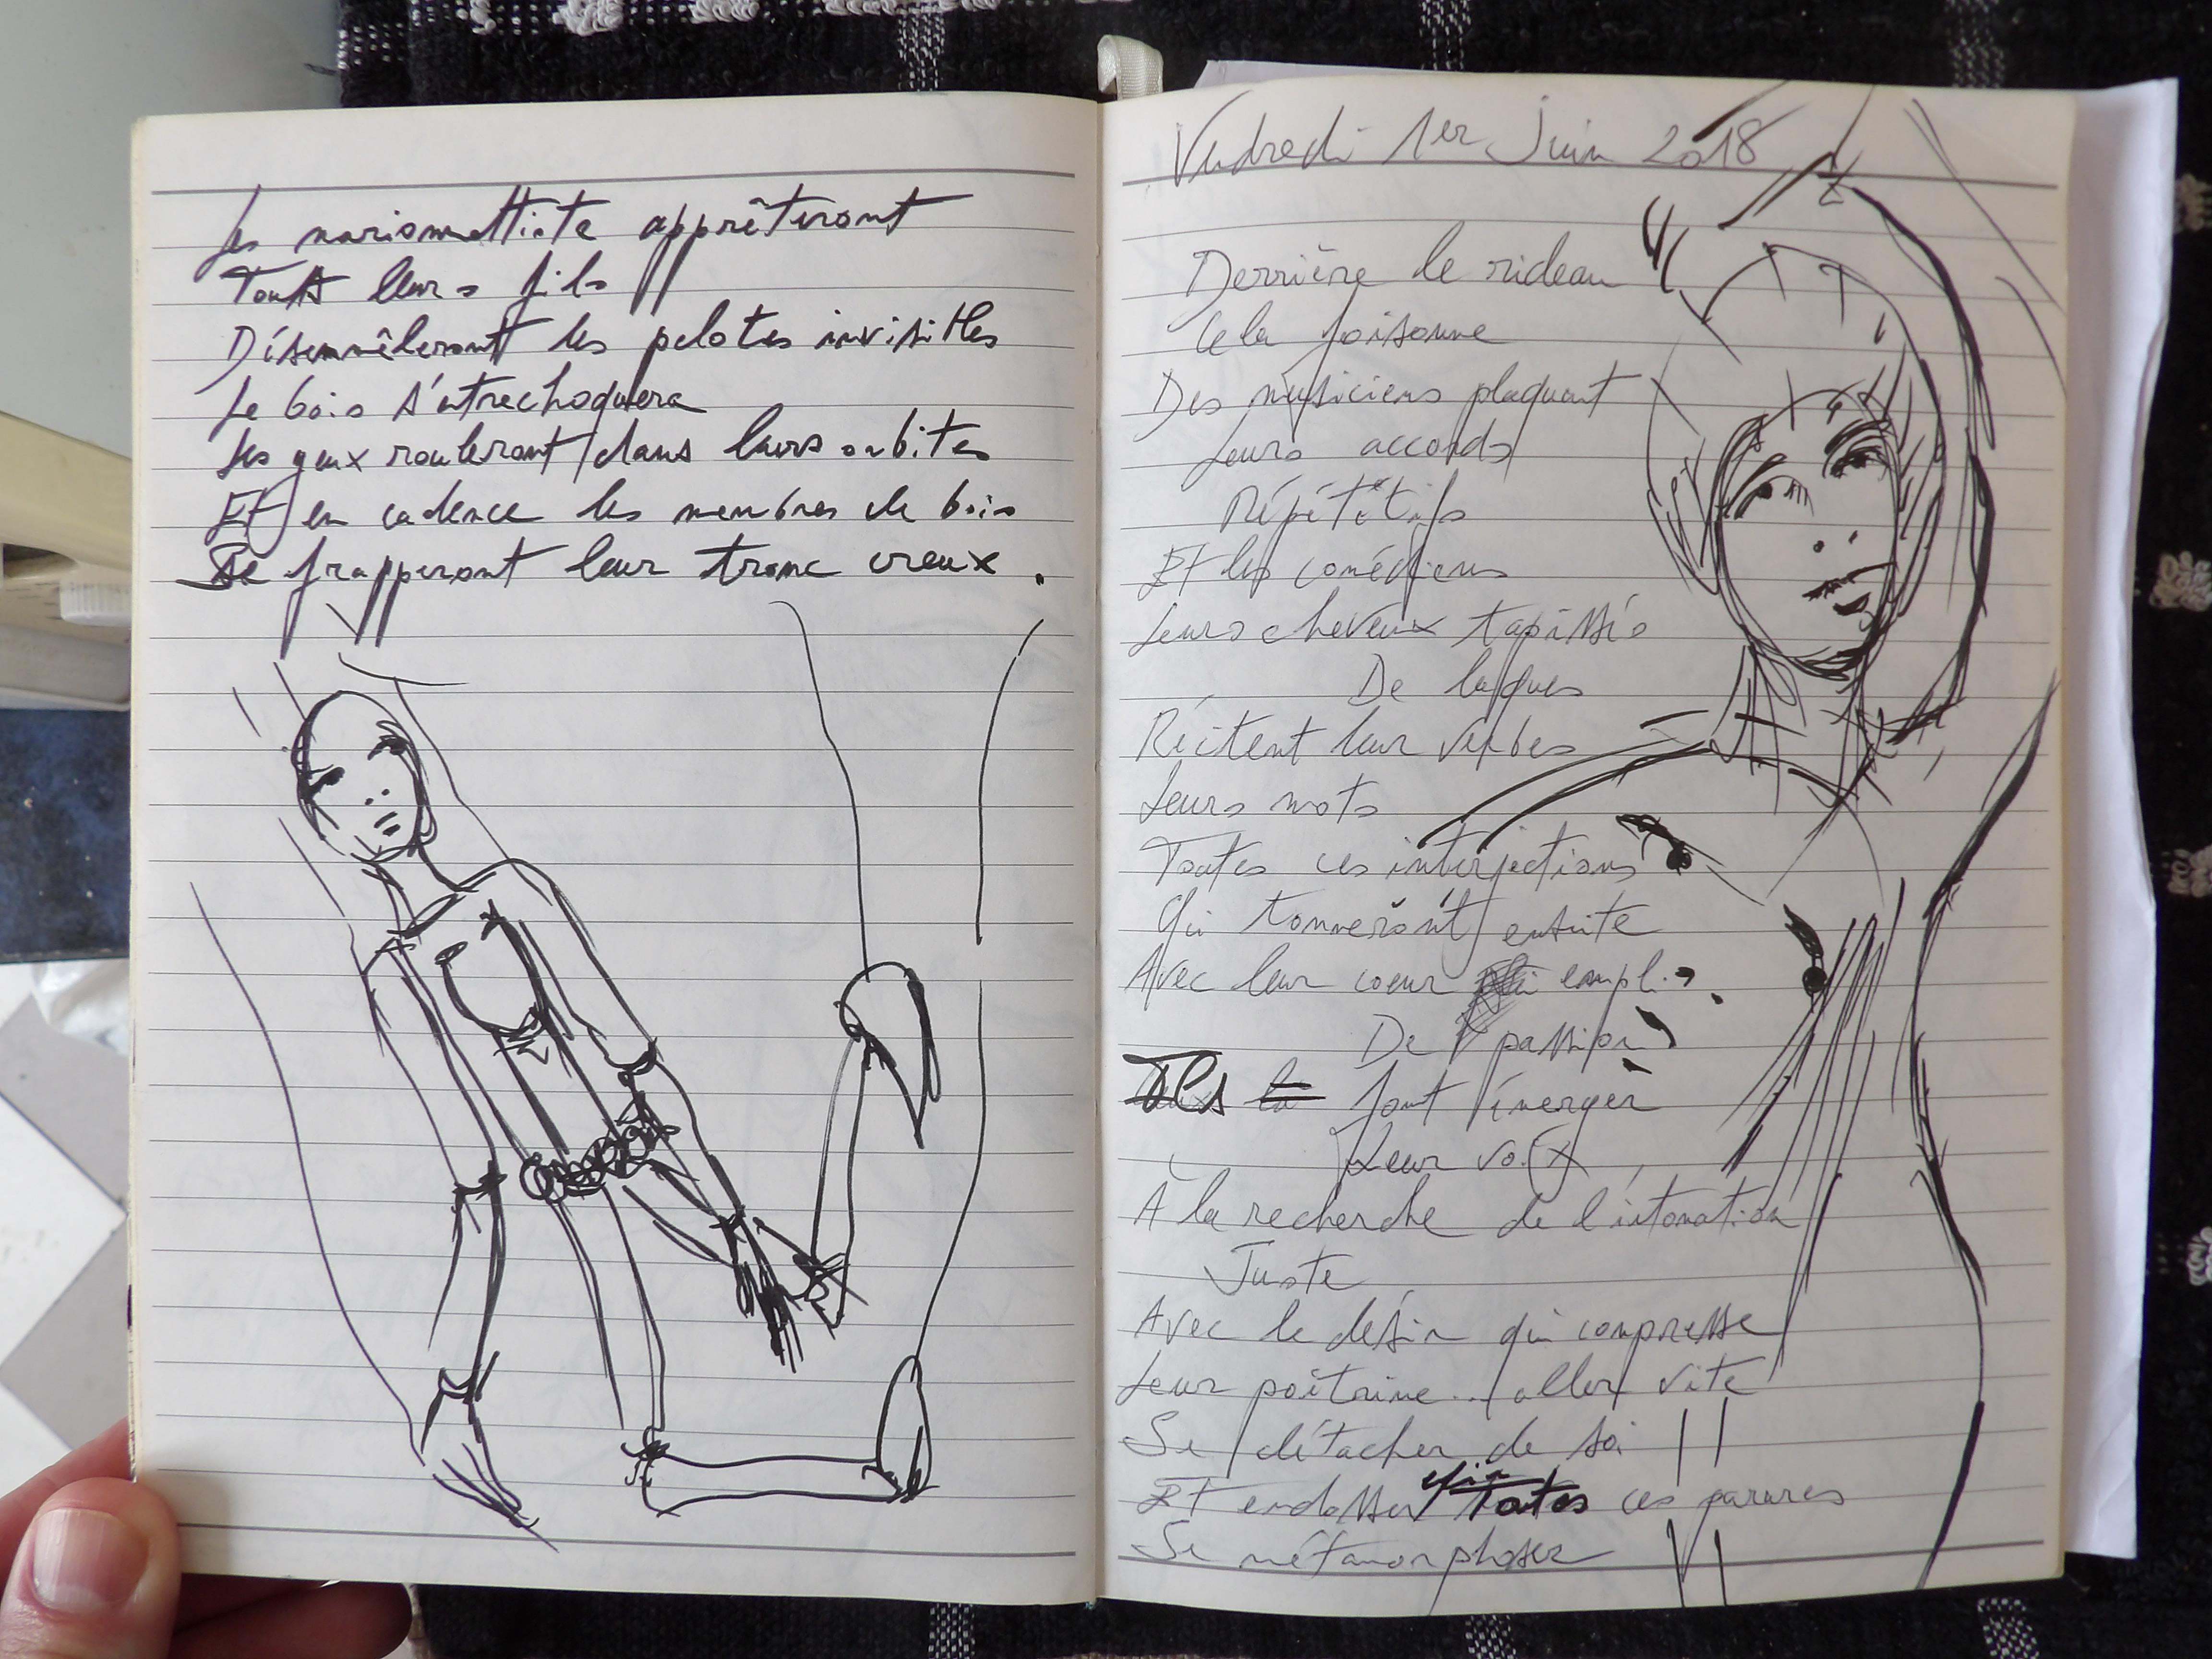 Les marionnettiste apprêteront
Touts leurs fils
Désenmêleront les pelotes invisibles
Le bois s'entrechoquera
Les yeux rouleront dans leurs orbites
Et en cadence les membres de bois
Se frapperont leur tronc creux.
Vendredi 1er Juin 2018
Derrière le rideau
Cela foisonne
Des musiciens plaquant
Leurs accords
Répétitifs
Et les comédiens
Leurs cheveux tapissés
De laques
Récitent leur verbes
Leurs mots
Toutes ces interjections
Qui tonneront ensuite
Avec leur coeur emplis
De passion
Ils la font émerger
Leur voix
À la recherche de l'intonation
Juste
Avec le désir qui compresse
Leur poîtrine... aller vite
Se détacher de soi
Et endosser toutes ces parures
Se métamorphoser